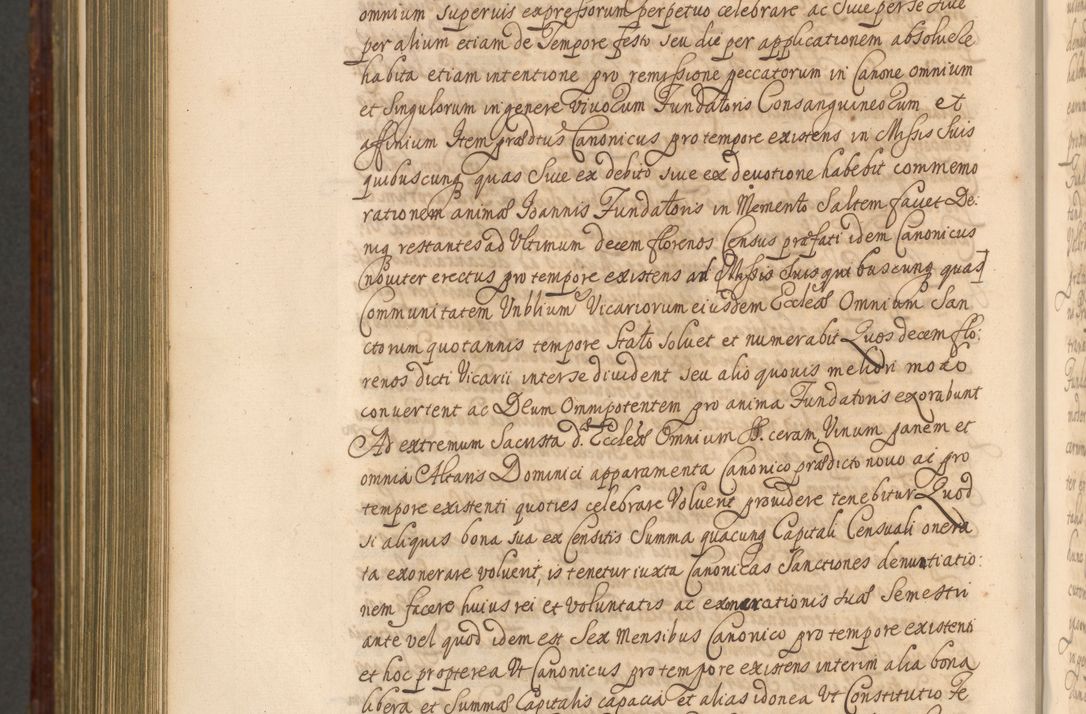 omnium superuis expressorum perpetuo celebrare ac Siue per se siue
per alium etiam de Tempore festo seu die per applicationem absoluere
habita etiam intentione pro remissione peccatorum in Canone omnium
et Singulorum in genere vivorum Fundatoris Consanguineorum et
affinium Item prædctus Canonicus pro tempore existens in Missis Suis
quibuscunq quas Siue ex debito siue ex devotione habebit commemo
rationem animæ Ioannis Fundatoris in Memento Saltem faciet De:
niq restantes ad Ultimum decem florenos Census præfati idem Canonicus
noviter erectus pro tempore existens ad Missis Suis quibuscunq quas
Communitatem Vnblium Vicariorum eiusdem Eccleæ Omnium San
ctorum quotannis tempore Stato soluet et numerabit Quos decem flo:
renos dicti Vicarii inter se diuident seu alio quouis meliori modo
convertent ac Deum Omnipotentem pro anima Fundatoris exorabunt
Ad extremum Sacrista d. Eccleæ Omnium SS. ceram Vinum panem et
omnia Altaris Dominici apparamenta Canonico prædicto novo ac pro
tempore existenti quoties celebrare Voluent prouidere tenebitur Quod
si aliquis bona sua ex Censitis Summa quacunq Capitali Censuali onera
ta exonerare voluent, is tenetur iuxta Canonicas Sanctiones denuntiatio:
nem facere huius rei et voluntatis ac exonerationis suæ Semestri
ante vel quod idem est Sex Mensibus Canonico pro tempore existenti
et hoc propterea Vt Canonicus pro tempore existens interim alia bona
libera et Summæ Capitalis capacia et alias idonea Vt Constitutio Te